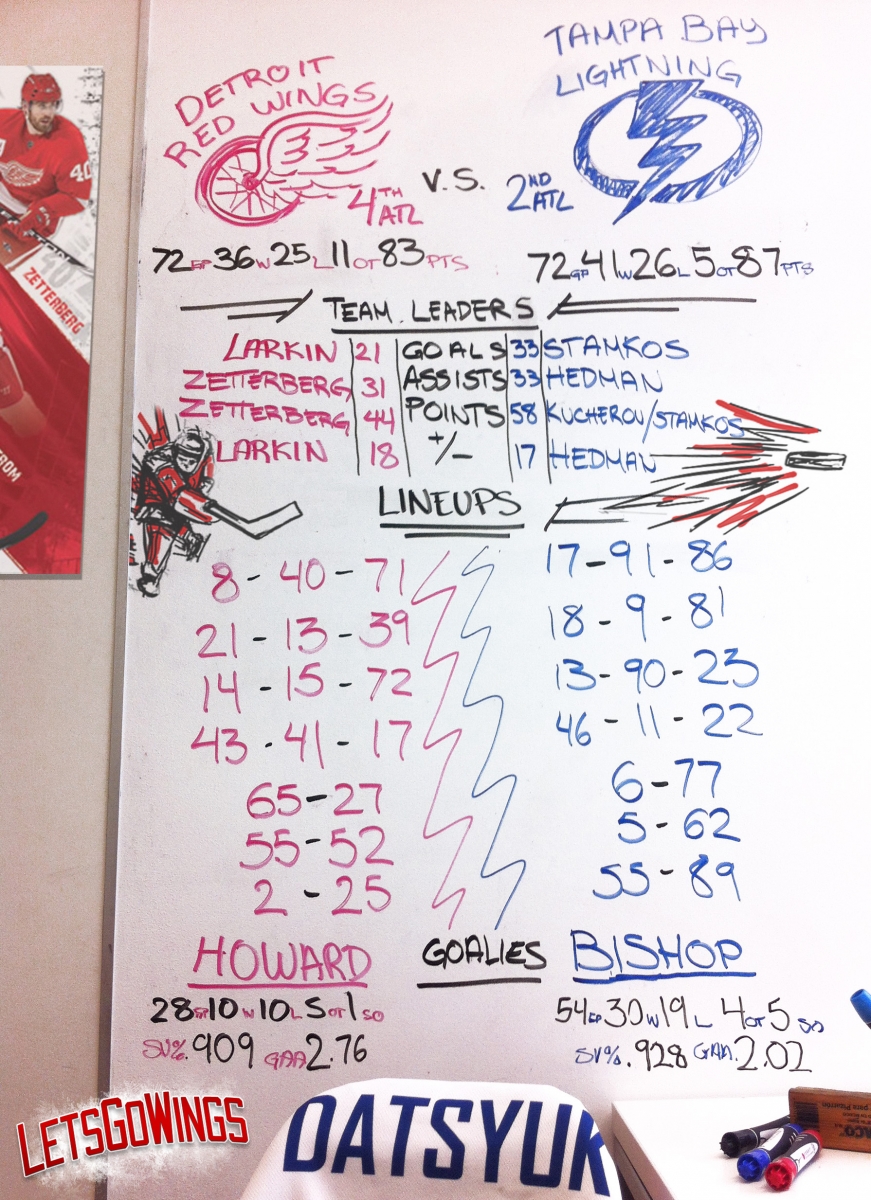 DETROIT
RED WINGS
4TH
ATL
V.S.
TAMPA BAY
LIGHTNING
2ND
ATL
72GP 36W 25L 11OT 83PTS
72GP 41W 26L 5OT 87PTS
TEAM LEADERS
LARKIN 21 GOALS 33 STAMKOS
ZETTERBERG 31 ASSISTS 33 HEDMAN
ZETTERBERG 44 POINTS 58 KUCHEROV/STAMKOS
LARKIN 18 +/- 17 HEDMAN
LINEUPS
8 - 40 - 71
21 - 13 - 39
14 - 15 - 72
43 - 41 - 17
65 - 27
55 - 52
2 - 25
17 - 91 - 86
18 - 9 - 81
13 - 90 - 23
46 - 11 - 22
6 - 77
5 - 62
55 - 89
GOALIES
HOWARD
28GP 10W 10L 5OT 1SO
SV% .909 GAA 2.76
BISHOP
54GP 30W 19L 4OT 5SO
SV% .928 GAA 2.02
40
ZETTERBERG
LETSGOWINGS
DATSYUK